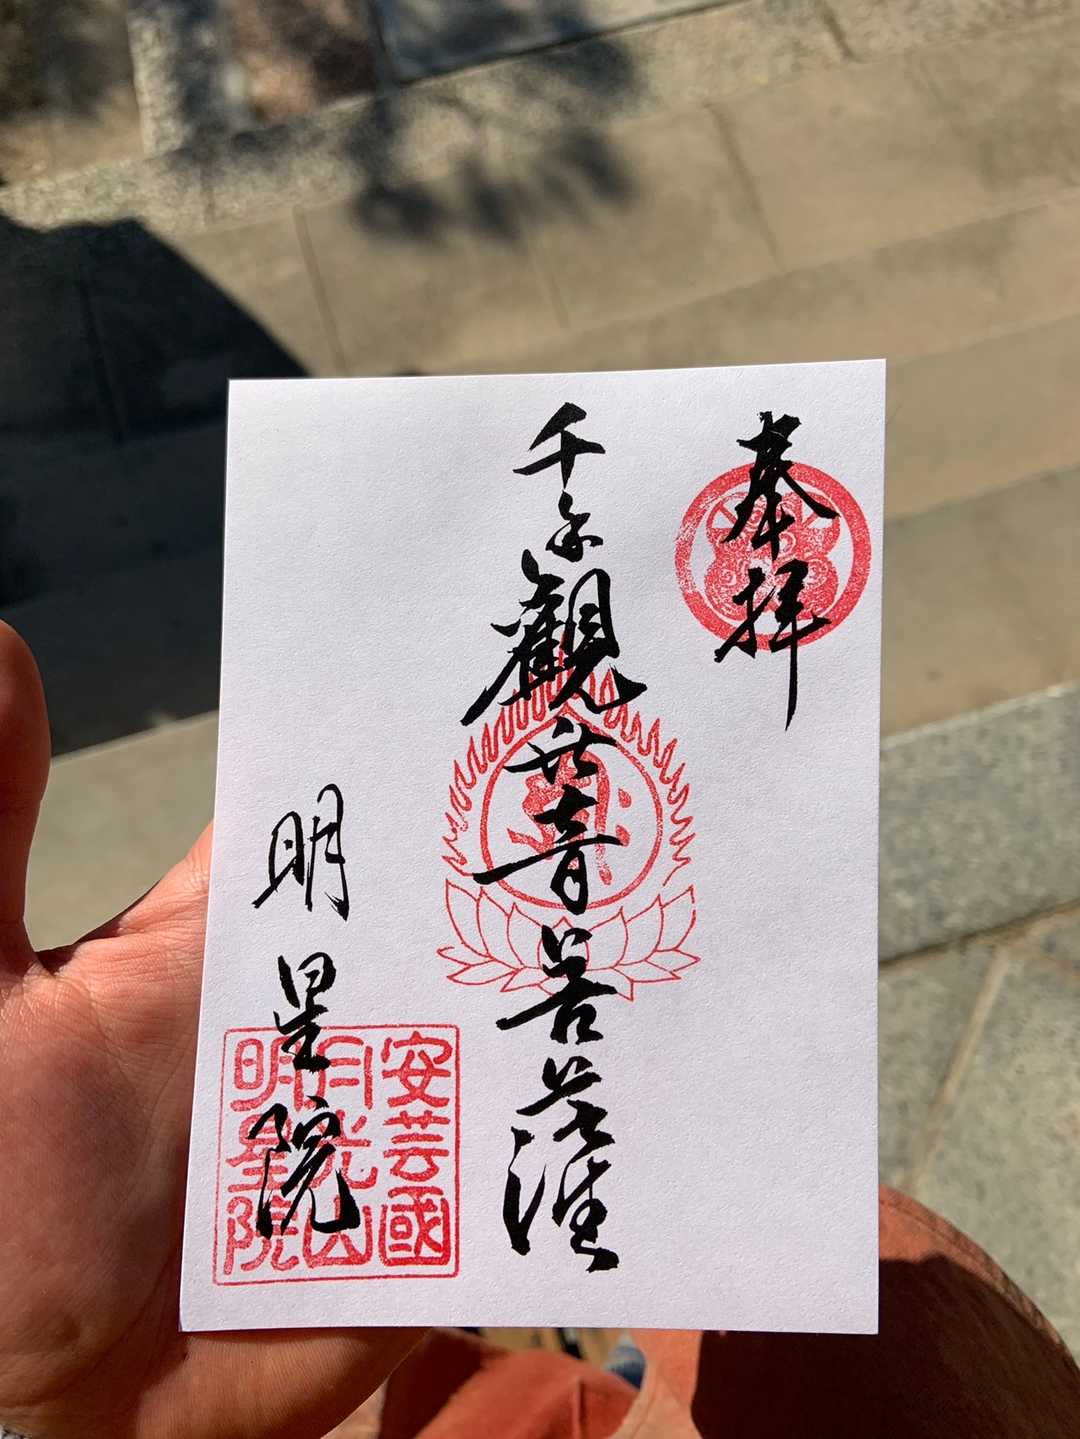 奉拝
千手観世音菩薩
明星院
安芸國
月光山
明星院